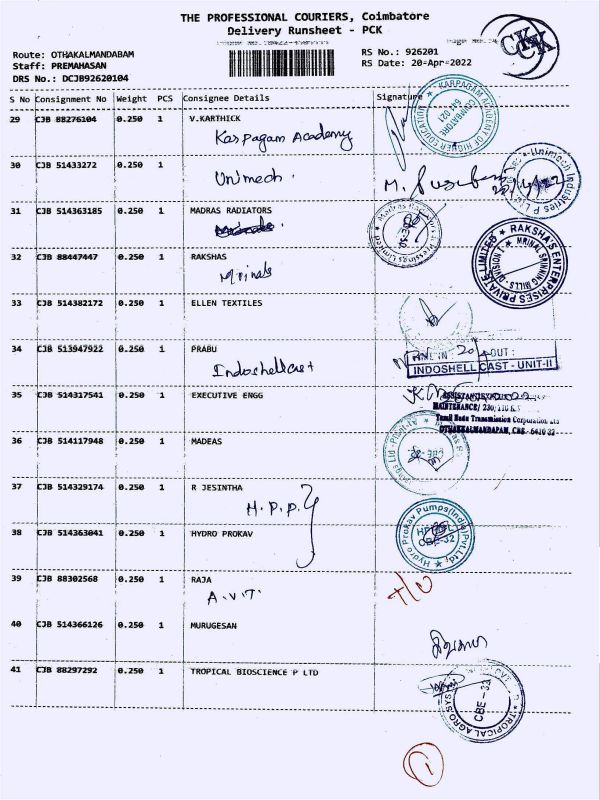 THE PROFESSIONAL COURIERS, Coimbatore
Delivery Runsheet - PCK
Route: OTHAKALMANDABAM
RS No.: 926201
Staff: PREMAHASAN
RS Date: 20-Apr-2022
DRS No.: DCJB92620104
S No Consignment No Weight PCS Consignee Details Signature
29 CJB 88276104 0.250 1 V.KARTHICK
Karpagam Academy
KARPAGAM ACADEMY OF HIGHER EDUCATION
COIMBATORE 641 021
30 CJB 51433272 0.250 1
Unimech.
Unimech Industries P Ltd
31 CJB 514363185 0.250 1 MADRAS RADIATORS
32 CJB 88447447 0.250 1 RAKSHAS
Mrinals
RAKSHA'S ENTERPRISES PRIVATE LIMITED
MRINAL SPINNING MILLS - DIVISION
33 CJB 514382172 0.250 1 ELLEN TEXTILES
34 CJB 513947922 0.250 1 PRABU
Indoshellcast
IN: 20/4 OUT:
INDOSHELL CAST - UNIT-II
35 CJB 514317541 0.250 1 EXECUTIVE ENGG
MAINTENANCE/ 230/110 K
Tamil Nadu Transmission Corporation Ltd
OTHAKKALMANDAPAM, CBE - 6410 32
36 CJB 514117948 0.250 1 MADEAS
37 CJB 514329174 0.250 1 R JESINTHA
H.P.P
38 CJB 514363041 0.250 1 HYDRO PROKAV
Hydro Prokav Pumps(India)Pvt.Ltd;
CBE-32
39 CJB 88302568 0.250 1 RAJA
A.V.T.
40 CJB 514366126 0.250 1 MURUGESAN
41 CJB 88297292 0.250 1 TROPICAL BIOSCIENCE P LTD
TROPICAL AGROSYS
CBE-32
1